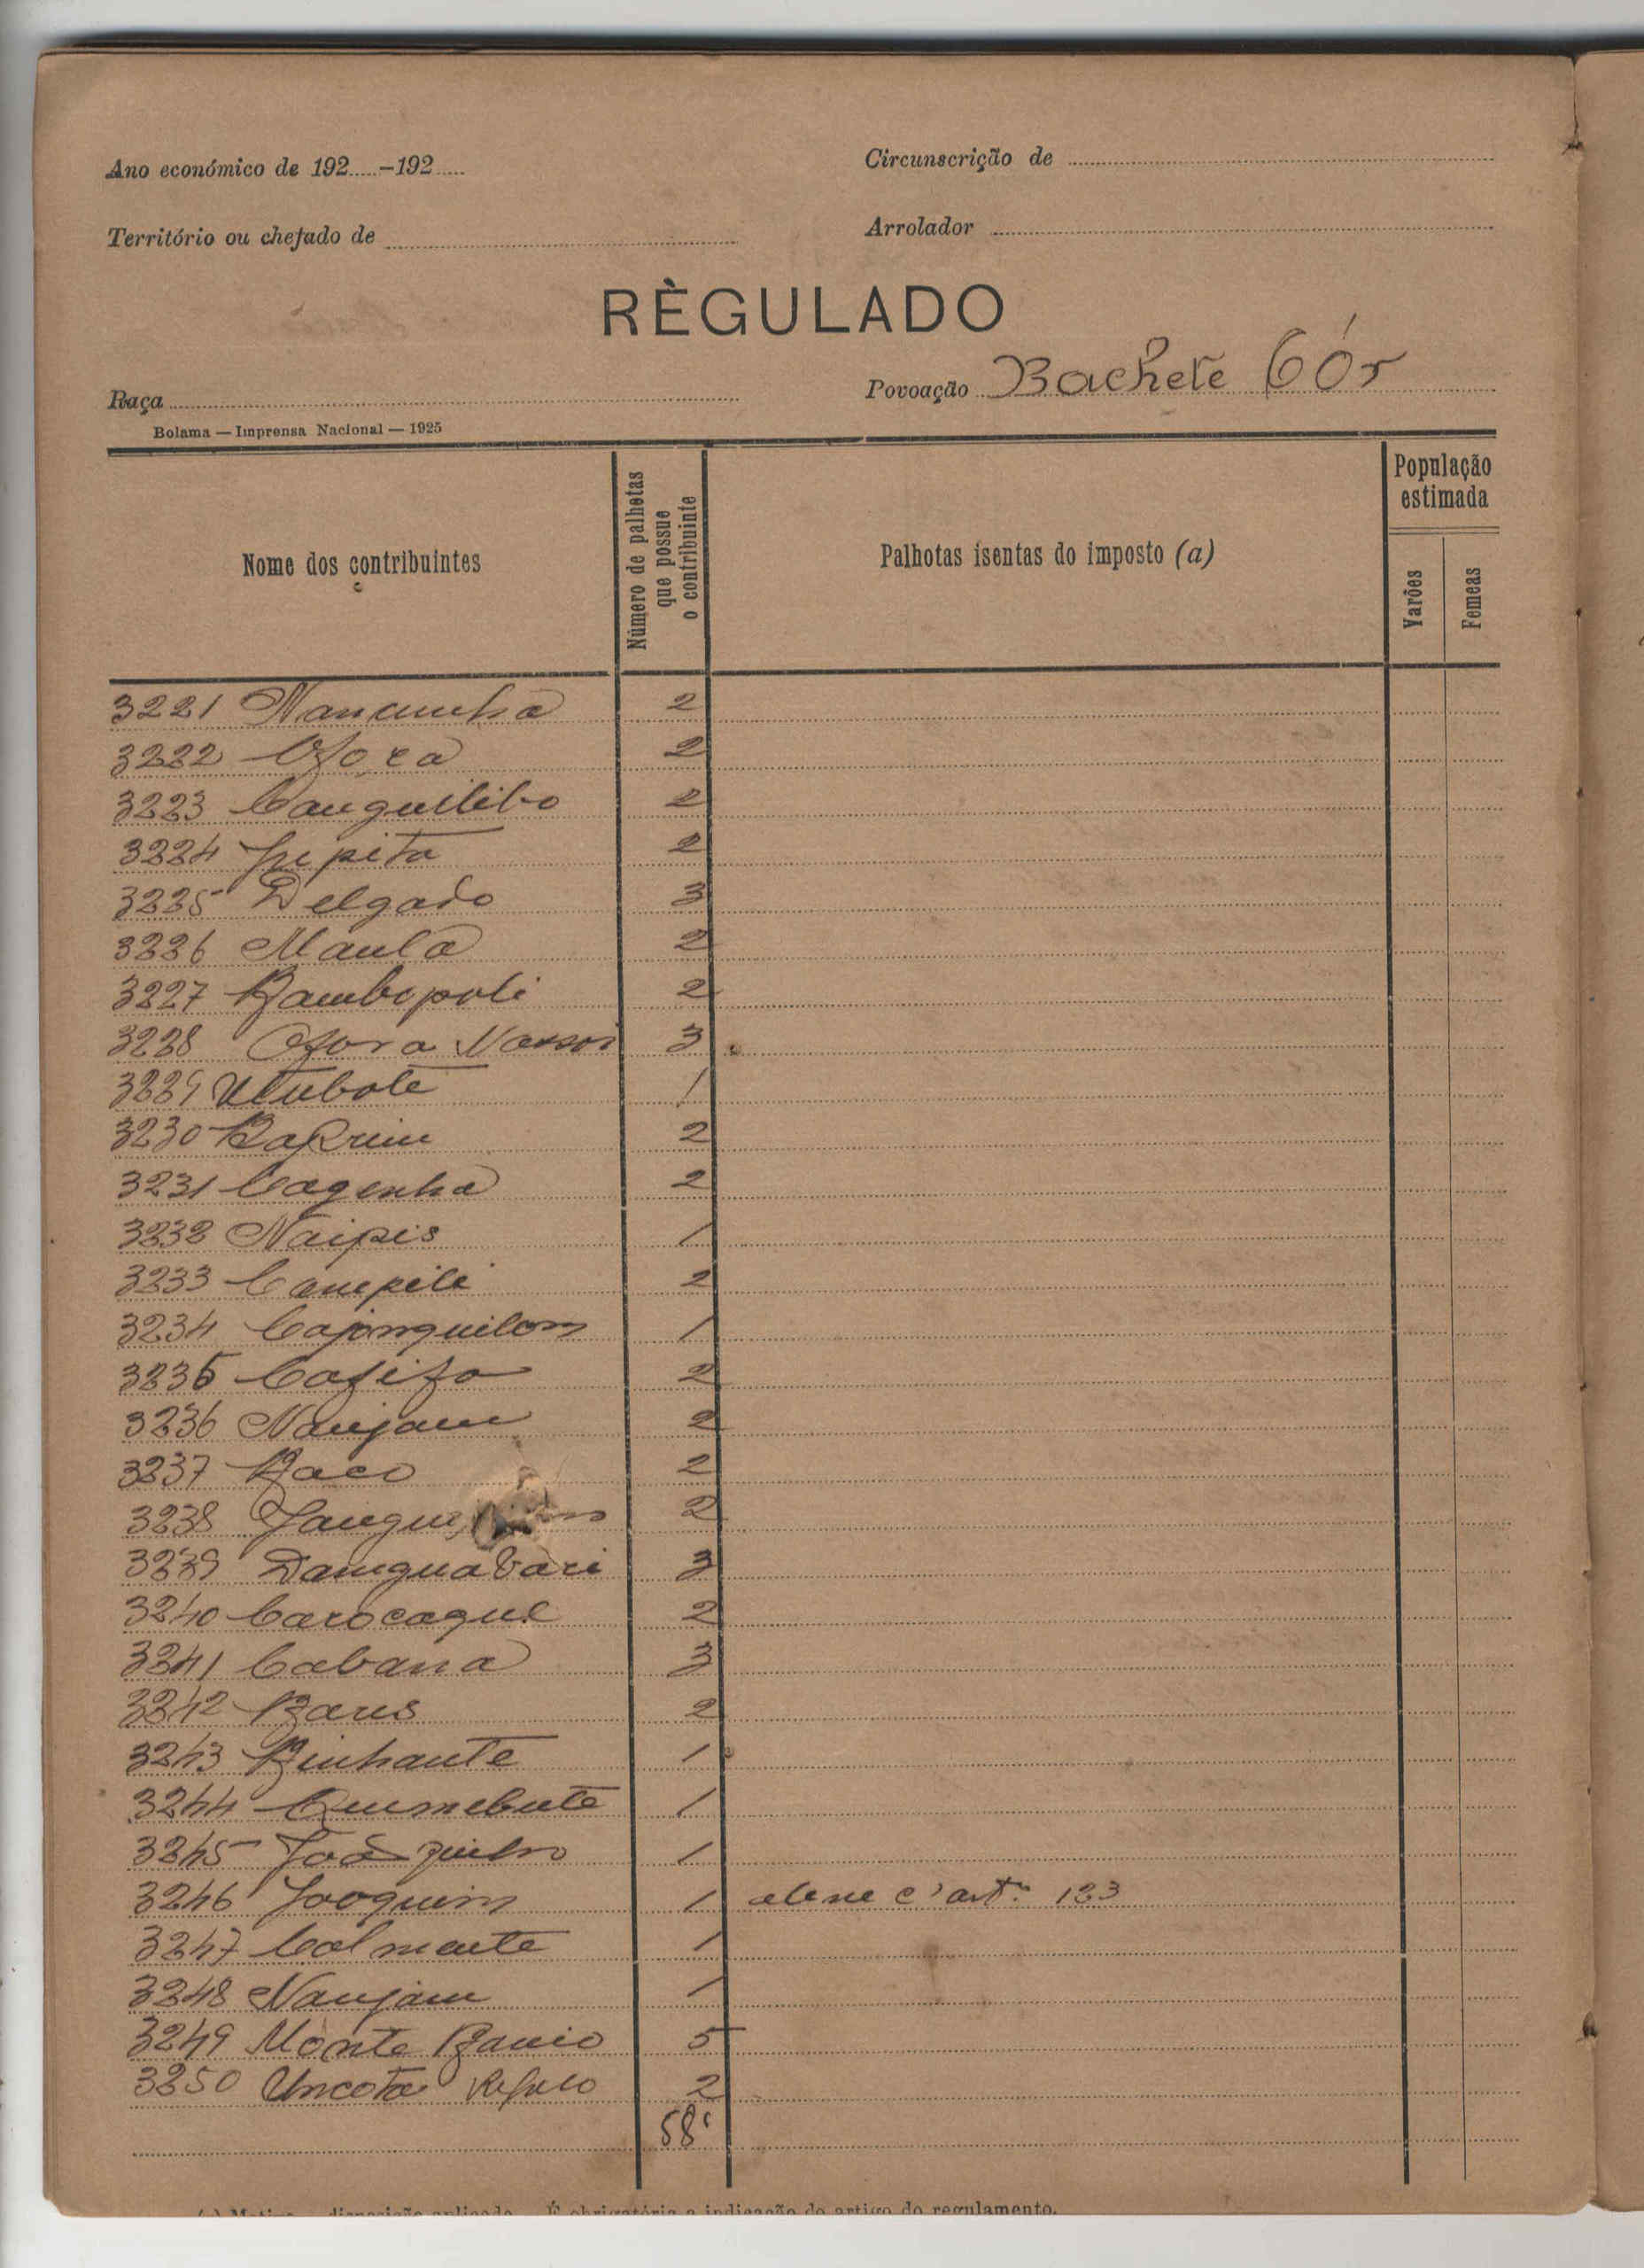 Ano económico de 192.....–192.....
Circunscrição de
Território ou chefado de
Arrolador
RÈGULADO
Raça
Povoação Bachete Cór
Bolama — Imprensa Nacional — 1925
Nome dos contribuintes
Número de palhotas que possue o contribuinte
Palhotas isentas do imposto (a)
População estimada
Varões
Femeas
3221 Nanancunha 2
3222 2
3223 Canguilibo 2
3224 Jupita 2
3225 Delgado 3
3226 Maula 2
3227 Bambopoli 2
3228 3
3229 Utubote 1
3230 2
3231 Cagenha 2
3232 Naipis 1
3233 Campili 2
3234 Cajonguilom 1
3235 Cafifo 2
3236 Naujam 2
3237 Baco 2
3238 2
3239 Damguabari 3
3240 Carocaque 2
3241 Cabana 3
3242 Baus 2
3243 Binhante 1
3244 Quimebute 1
3245 1
3246 Jooquim 1 art.º 133
3247 Calmente 1
3248 Naujam 1
3249 Monte 5
3250 Uncota 2
58
(a) Motivo disposição aplicada. É obrigatória a indicação do artigo do regulamento.